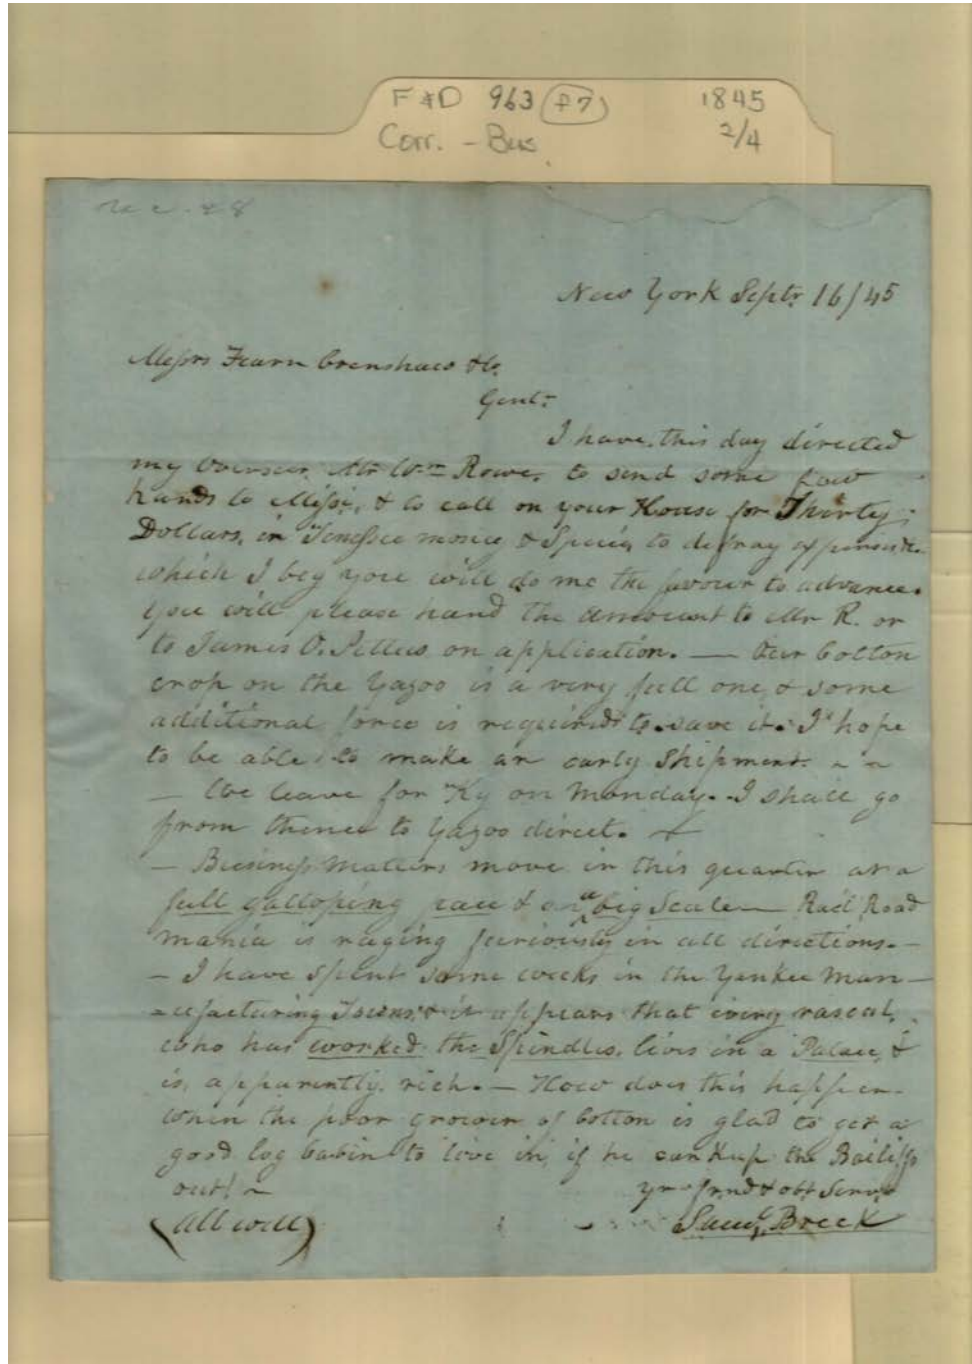 F&D 963 (f7) 1845
Corr. - Bus. 2/4
New York Septr. 16/45
Messrs Fearn Crenshaw & Co.
Gent:
I have this day directed
my Overseer, Mr Wm Rowe, to send some few
hands to Missi, & to call on your House for Thirty
Dollars, in Tenessee money & Specie, to defray expenses &c
which I beg you will do me the favour to advance.
You will please hand the amount to Mr R. or
to James O. on application. — Our Cotton
crop on the Yazoo is a very full one, & some
additional force is required to save it. I hope
to be able to make an early Shipment. ~ ~
— We leave for Ky on Monday. I shall go
from thence to Yazoo direct. —
— Business Matters move in this quarter at a
full galloping pace & on a big Scale — Rail Road
mania is raging furiously in all directions. —
— I have spent some weeks in the Yankee Man-
-ufacturing Towns, & it appears that every rascal,
who has worked the Spindles, lives in a Palace, &
is, apparently, rich. — How does this happen
when the poor grower of Cotton is glad to get a
good log Cabin to live in, if he can Keep the Bailiffs
out! ~ yr frnd & obt Servt
(All well) Saml. Breck